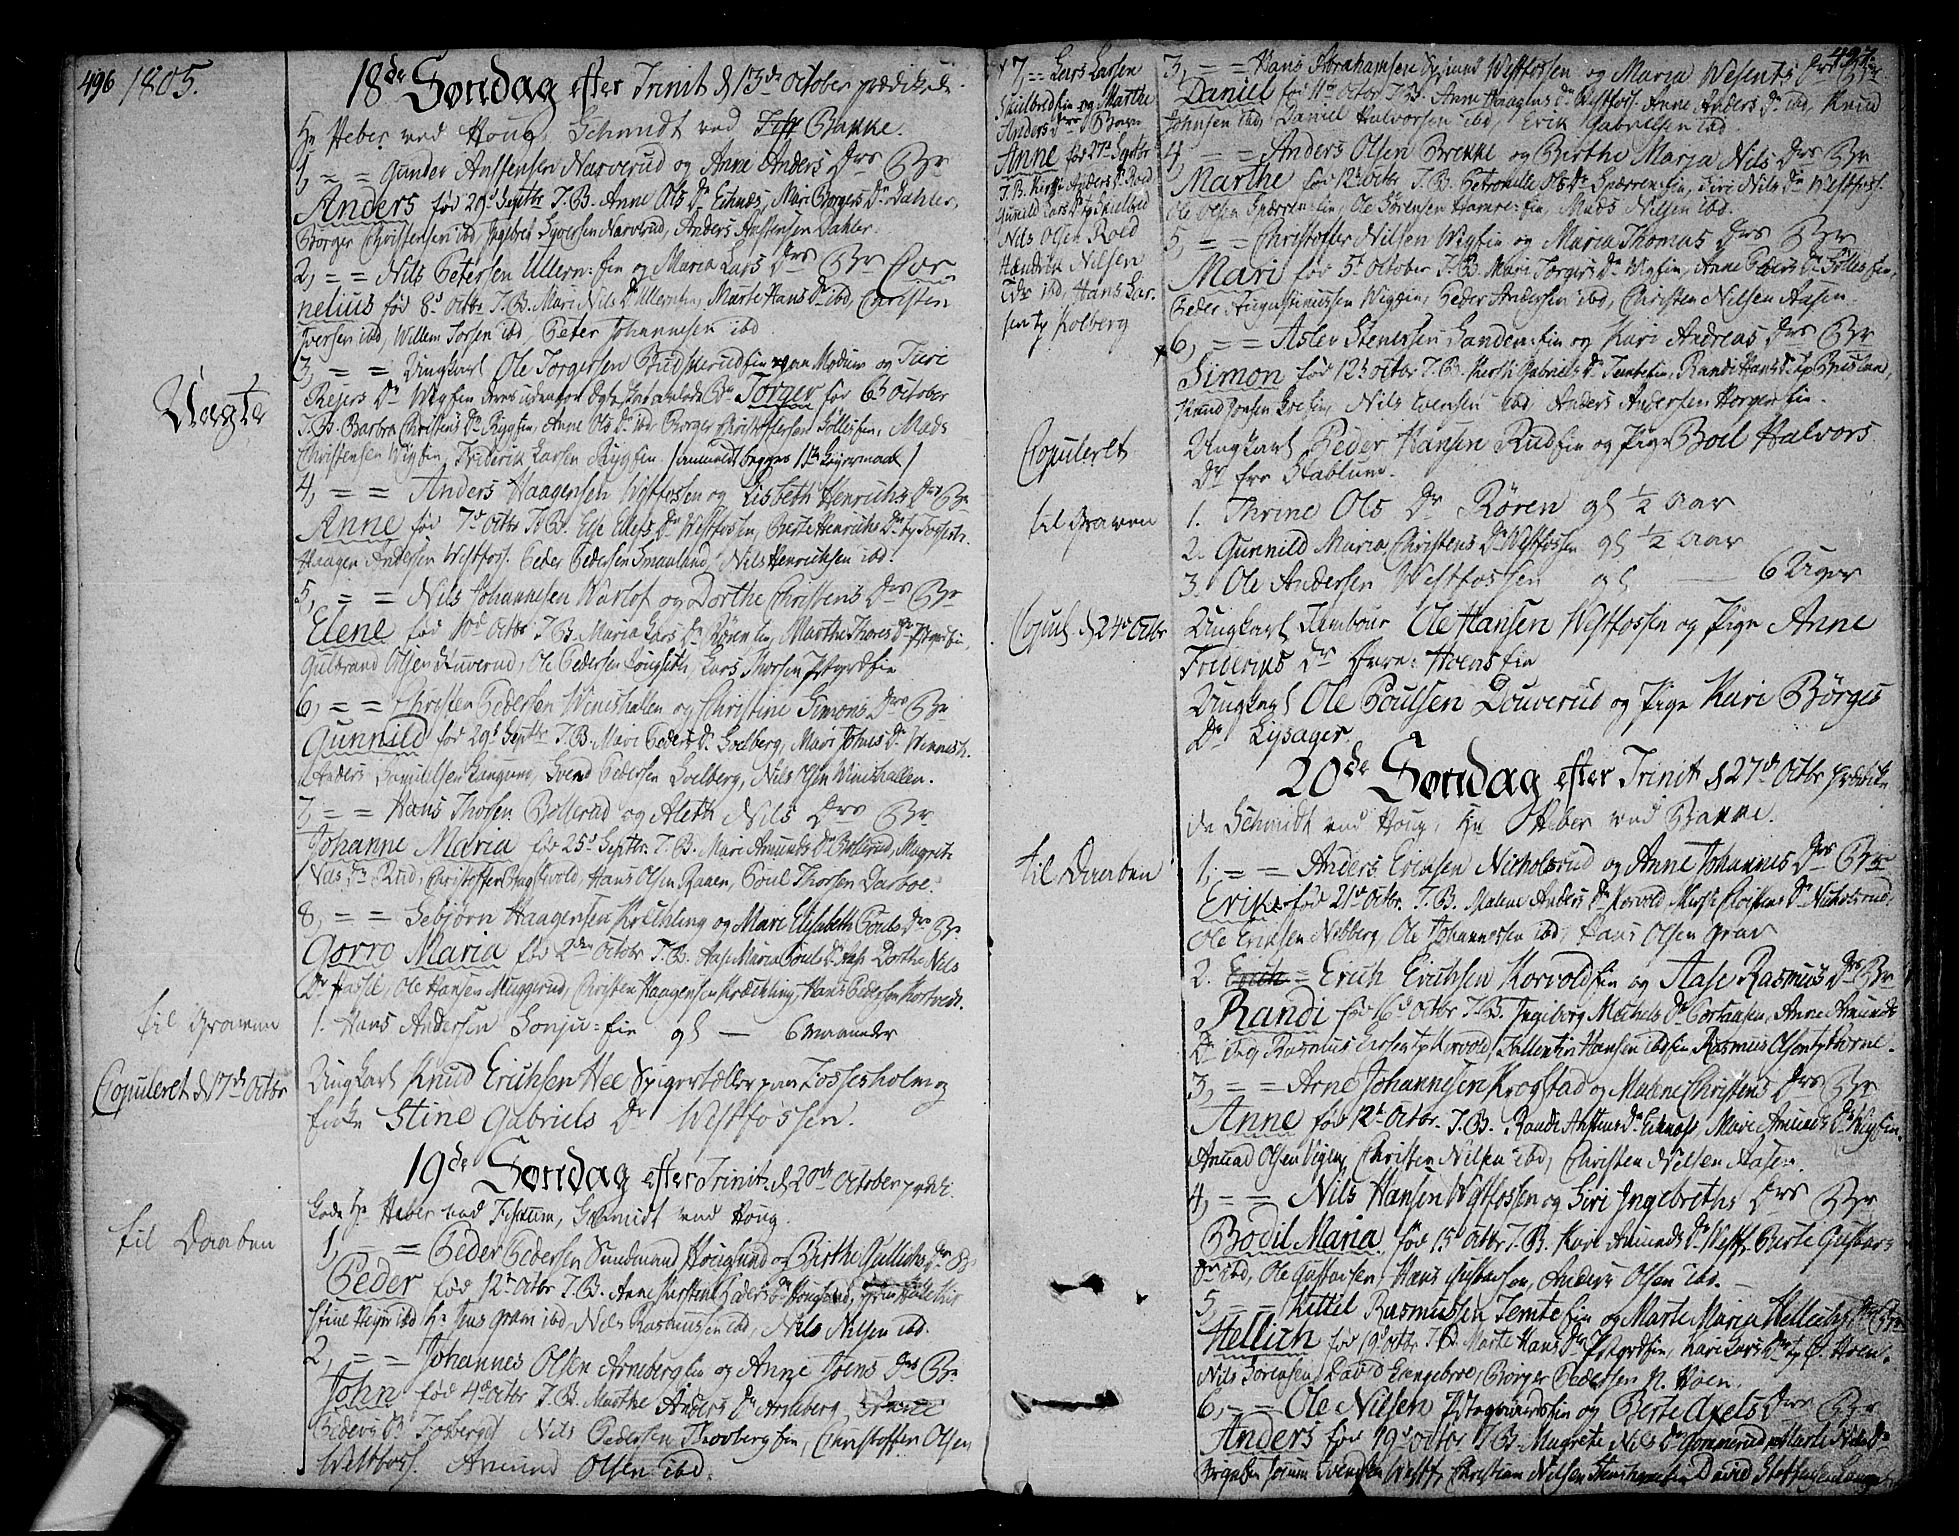 496 1805.
18de Søndag efter Trinit d 13de October prædikede
Hr Heber ved Houg, Schmidt ved Bakke.
1, = = Gunder Anstensen Narverud og Anne Anders Drs Br
Anders fød 29d Septbr T. B. Anne Ols Dr Eknæs, Mari Borgers Dr Dahler,
Borger Christensen ibd, Ingebret Syversen Narverud, Anders Anstensen Dahler.
2, = = Nils Petersen Ullern: fin og Maria Lars Drs Br Cor-
nelius fød 8d Octbr T. B. Mari Nils Dr Ullernfin, Marte Hans Dr ibd, Christen
Iversen ibd, Willem Torsen ibd, Peter Johannesen ibd
Uægte
3, = = Ungkarl Ole Torgersen Buskerudfin paa Modum og Turi
Rejers Dr Wigfin Torger fød 6 October
T. B. Barbra Christens Dr Rygfin, Anne Ols Dr ibd Borger Christoffersen Sollesfin, Mads
Christensen Wigfin, Friderik Larsen Rygfin / anmeldt begges 1ste Leyermaal /
4, = = Anders Haagensen Westfossen og Lisbeth Henrichs Drs Br
Anne fød 7d Octbr T. B. Else Ellefs Dr Westfossen, Berte Henrichs Dr
Haagen Andersen Westfoss. Peder Pedersen Smaaland, Nils Henrichsen ibd.
5, = = Nils Johannesen Warlof og Dorthe Christens Drs Br
Elene fød 10d Octbr T. B. Maria Lars Dr Røren, Marthe Thores Dr
Gulbrand Olsen Kuverud, Ole Pedersen, Lars Thorsen
6, = = Christen Pedersen Wineshallen og Christine Simons Drs Br
Gunnild fød 29d Septbr T. B. Mari Peders Dr Solberg, Mari Johns Dr Winnesh.
Anders Langund, Svend Pedersen Solberg, Nils Olsen Wineshallen.
7, = = Hans Thosen Bollerud og Aleth Nils Drs Br
Johanne Maria fød 25d Septbr. T. B. Mari Amunds Dr Bollerud, Magrete
Nils Dr Rud, Christoffer, Hans Olsen Raaen, Poul Thorsen Darboe.
8, = = Gebjørn Haagensen Krechling og Mari Elisabeth Pouls Drs Br
Gorro Maria fød 2den Octobr T. B. Maria Pouls Dr Aas Dorthe Nils
Dr Hasle, Ole Hansen Muggerud, Christen Haagensen Krechling, Hans Pedersen
til Graven 1. Hans Andersen Sonju=fin gl — 6 Maaneder
Copuleret d 17de Octbr Ungkarl Knud Erichsen Hee Spigertæller paa Fossesholm og
Pike Stine Gabriels Dr Westfossen.
19de Søndag efter Trinit. d 20de October prædi-
kede Hr Heber ved Fiskum, Schmidt ved Houg.
til Daaben
1, = = Peder Pedersen Sundmand Houglund og Birthe Gullichs Dr Br
Peder fød 12te Octbr T. B. Anne Kirstine Peders Dr Houglund,
stine ibd Hr Jens Gram ibd, Nils Rasmussen ibd, Nils Nilsen ibd.
2, = = Johannes Olsen Arneberg fin og Anne Joens Drs Br
John fød 4de Octbr T. B. Marthe Anders Dr Arneberg
Peders Dr Nils Pedersen Thorbergfin, Christoffer Olsen
Westfoss. Amund Olsen ibd.
7, = = Lars Larsen
Skielbredfin og Marthe
Anders Drs Barn
Anne fød 27d Septbr
T. B. Kirsti Anders Dr Roed
Gunild Lars Dr tp Skielbred
Nils Olsen Roed
Hendrik Nilsen
ibd, Hans Lar-
sen tp Kolberg
497.
3, = = Hans Abrahamsen Westfossen og Maria Wesents Drs Br
Daniel fød 11te Octbr T. B. Anne Haagens Dr Westfoss. Anne Anders Dr ibd. Knud
Johnsen ibd, Daniel Halvorsen ibd, Erik Gabrielsen ibd.
4 = = Anders Olsen Brekke og Birthe Maria Nils Drs Br
Marthe fød 12te Octbr. T. B. Petronelle Ols Dr Sperren: fin, Siri Nils Dr Westfoss.
Ole Olsen Sperren: fin, Ole Sørensen Hamre: fin, Mads Nilsen ibd.
5 = = Christoffer Nilsen Wigfin og Maria Thomas Drs Br
Mari fød 5d October T. B. Mari Torgers Dr Wigfin, Anne Peders Dr Solles fin,
Peder Augustinussen Wigfin, Peder Andersen ibd, Christen Nilsen Aasen.
6, = = Aslev Stenersen Landen: fin og Kari Andreas Drs Br
Simon fød 12te Octbr T. B. Kirsti Gabriels Dr Temte fin, Randi Hans Dr
Knud Jonsen Loe fin, Nils Evensen ibd Anders Andersen Horgen fin.
Copuleret Ungkarl Peder Hansen Rudfin og Pige Boel Halvors
Dr fra Stablum.
til Graven 1. Thrine Ols Dr Røren gl ½ Aar
2. Gunnild Maria Christens Dr Westfossen gl ½ Aar
3. Ole Andersen Westfossen gl — 6 Uger
Copul. d 24de Octbr Ungkarl Tambour Ole Hansen Westfossen og Pige Anne
Frederiks Dr Hoens fin
Ungkarl Ole Poulsen Douverud og Pige Kari Børges
Dr Lysager.
20de Søndag efter Trinit d 27de Octbr prædike-
de Schmidt ved Houg, Hr Heber ved Bakke.
til Daaben
1, = = Anders Ericsen Nicholsrud og Anne Johannes Drs Br
Erik fød 21de Octbr. T. B. Malene Anders Dr Korvold Christens Dr Nicholsrud,
Ole Ericsen Nebberg, Ole Johannessen ibd, Hans Olsen Grav
2. Erich = Erich Erichsen Korvoldfin og Aase Rasmus Drs Br
Randi fød 16d Octbr T. B. Ingeborg Michels Dr, Anne Amunds
Dr Rasmus Korvold, Hallentin Hansen ibd fin Rasmus Olsen
3, = = Arne Johannesen Krogstad og Malene Christens Drs Br
Anne fød 12te Octbr. T. B. Randi Anstens Dr Eknæs, Mari Amunds Dr Wigfin.
Amund Olsen Vigen, Christen Nilsen ibd, Christen Nilsen Aasen.
4, = = Nils Hansen Westfossen og Siri Ingebreths Drs Br
Bodil Maria fød 15d Octbr T. B. Kari Amunds Dr Westf. Berte Gustavs
Dr ibd, Ole Gustavsen, Hans Gustavsen, Anders Olsen ibd.
5, = = Kittel Rasmussen Temte fin og Marte Maria Hellichs Drs Br
Hellich fød 19d Octbr T. B. Marte Hans Dr, Kari Lars Dr tp Ø. Hoen.
Nils Sørensen, David Engebroe, Børger Pedersen N. Hoen.
6, = = Ole Nilsen og Berte Axels Drs Br
Anders fød 19d Octbr T. B. Magrete Nils Dr Gommerud Marte Nils Dr
Evensen Westf, Christian Nilsen David